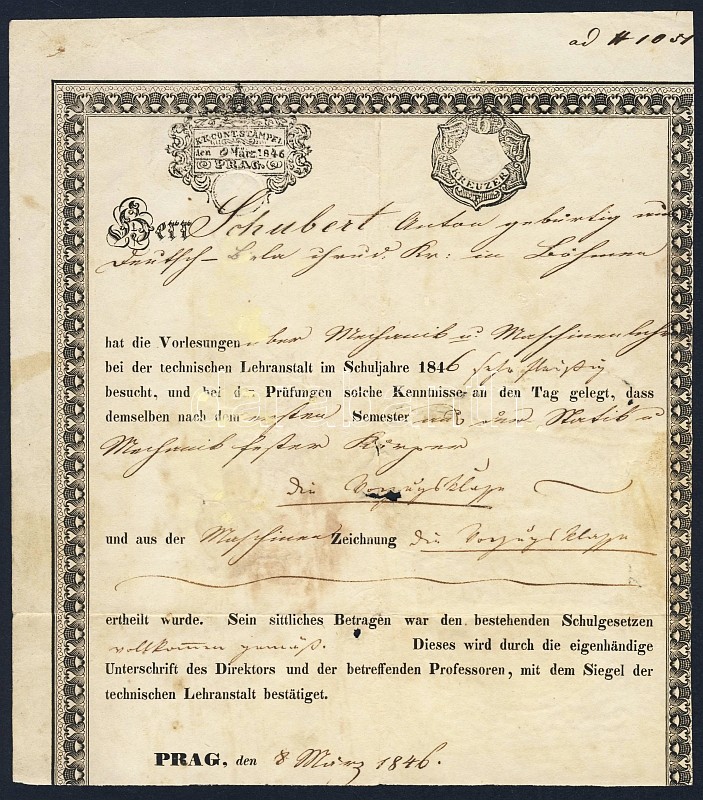 ad # 1051
K.K. CONT. STÄMPEL
den 9 März 1846
PRAG.
6
KREUZER
Herr Schubert Anton gebürtig aus
Deutsch-Bela chrud. Kr: in Böhmen
hat die Vorlesungen über Mechanik u. Maschinenlehre
bei der technischen Lehranstalt im Schuljahre 1846 sehr fleißig
besucht, und bei den Prüfungen solche Kenntnisse an den Tag gelegt, dass
demselben nach dem ersten Semester aus der Statik u
Mechanik fester Körper
die Vorzugsklasse
und aus der Maschinen Zeichnung die Vorzugsklasse
ertheilt wurde. Sein sittliches Betragen war den bestehenden Schulgesetzen
vollkommen gemäß. Dieses wird durch die eigenhändige
Unterschrift des Direktors und der betreffenden Professoren, mit dem Siegel der
technischen Lehranstalt bestätiget.
PRAG, den 8 März 1846.